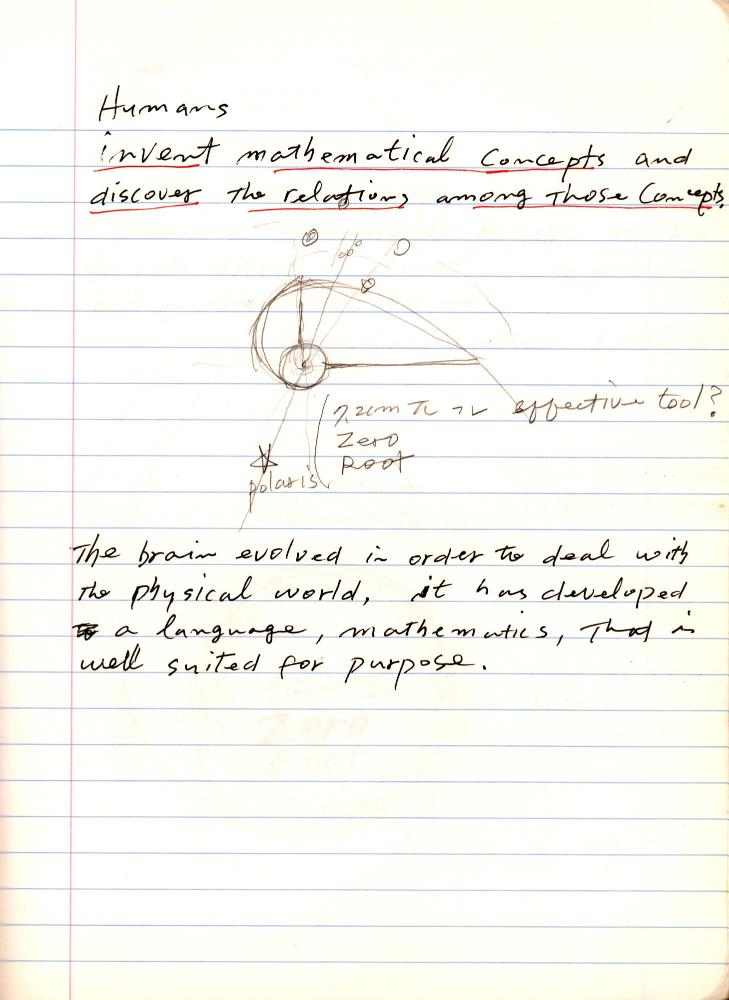 Humans
invent mathematical Concepts and
discover the relations among Those Concepts.
effective tool?
Zero
Root
polaris
The brain evolved in order to deal with
the physical world, it has developed
a language, mathematics, That is
well suited for purpose.